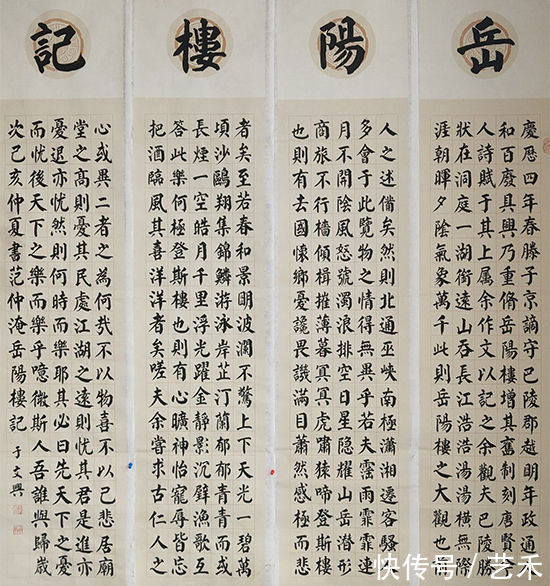 岳陽樓記
慶歷四年春滕子京謫守巴陵郡越明年政通人
和百廢具興乃重脩岳陽樓增其舊制刻唐賢今
人詩賦于其上屬余作文以記之余觀夫巴陵勝
狀在洞庭一湖銜遠山吞長江浩浩湯湯橫無際
涯朝暉夕陰氣象萬千此則岳陽樓之大觀也前
人之述備矣然則北通巫峽南極瀟湘遷客騷人
多會于此覽物之情得無異乎若夫霪雨霏霏連
月不開陰風怒號濁浪排空日星隱耀山岳潛形
商旅不行檣傾楫摧薄暮冥冥虎嘯猿啼登斯樓
也則有去國懷鄉憂讒畏譏滿目蕭然感極而悲
者矣至若春和景明波瀾不驚上下天光一碧萬
頃沙鷗翔集錦鱗游泳岸芷汀蘭郁郁青青而或
長煙一空皓月千里浮光躍金靜影沉璧漁歌互
答此樂何極登斯樓也則有心曠神怡寵辱皆忘
把酒臨風其喜洋洋者矣嗟夫余嘗求古仁人之
心或異二者之為何哉不以物喜不以己悲居廟
堂之高則憂其民處江湖之遠則憂其君是進亦
憂退亦憂然則何時而樂耶其必曰先天下之憂
而憂後天下之樂而樂乎噫微斯人吾誰與歸歲
次己亥仲夏書范仲淹岳陽樓記 于文興
快传号/艺禾